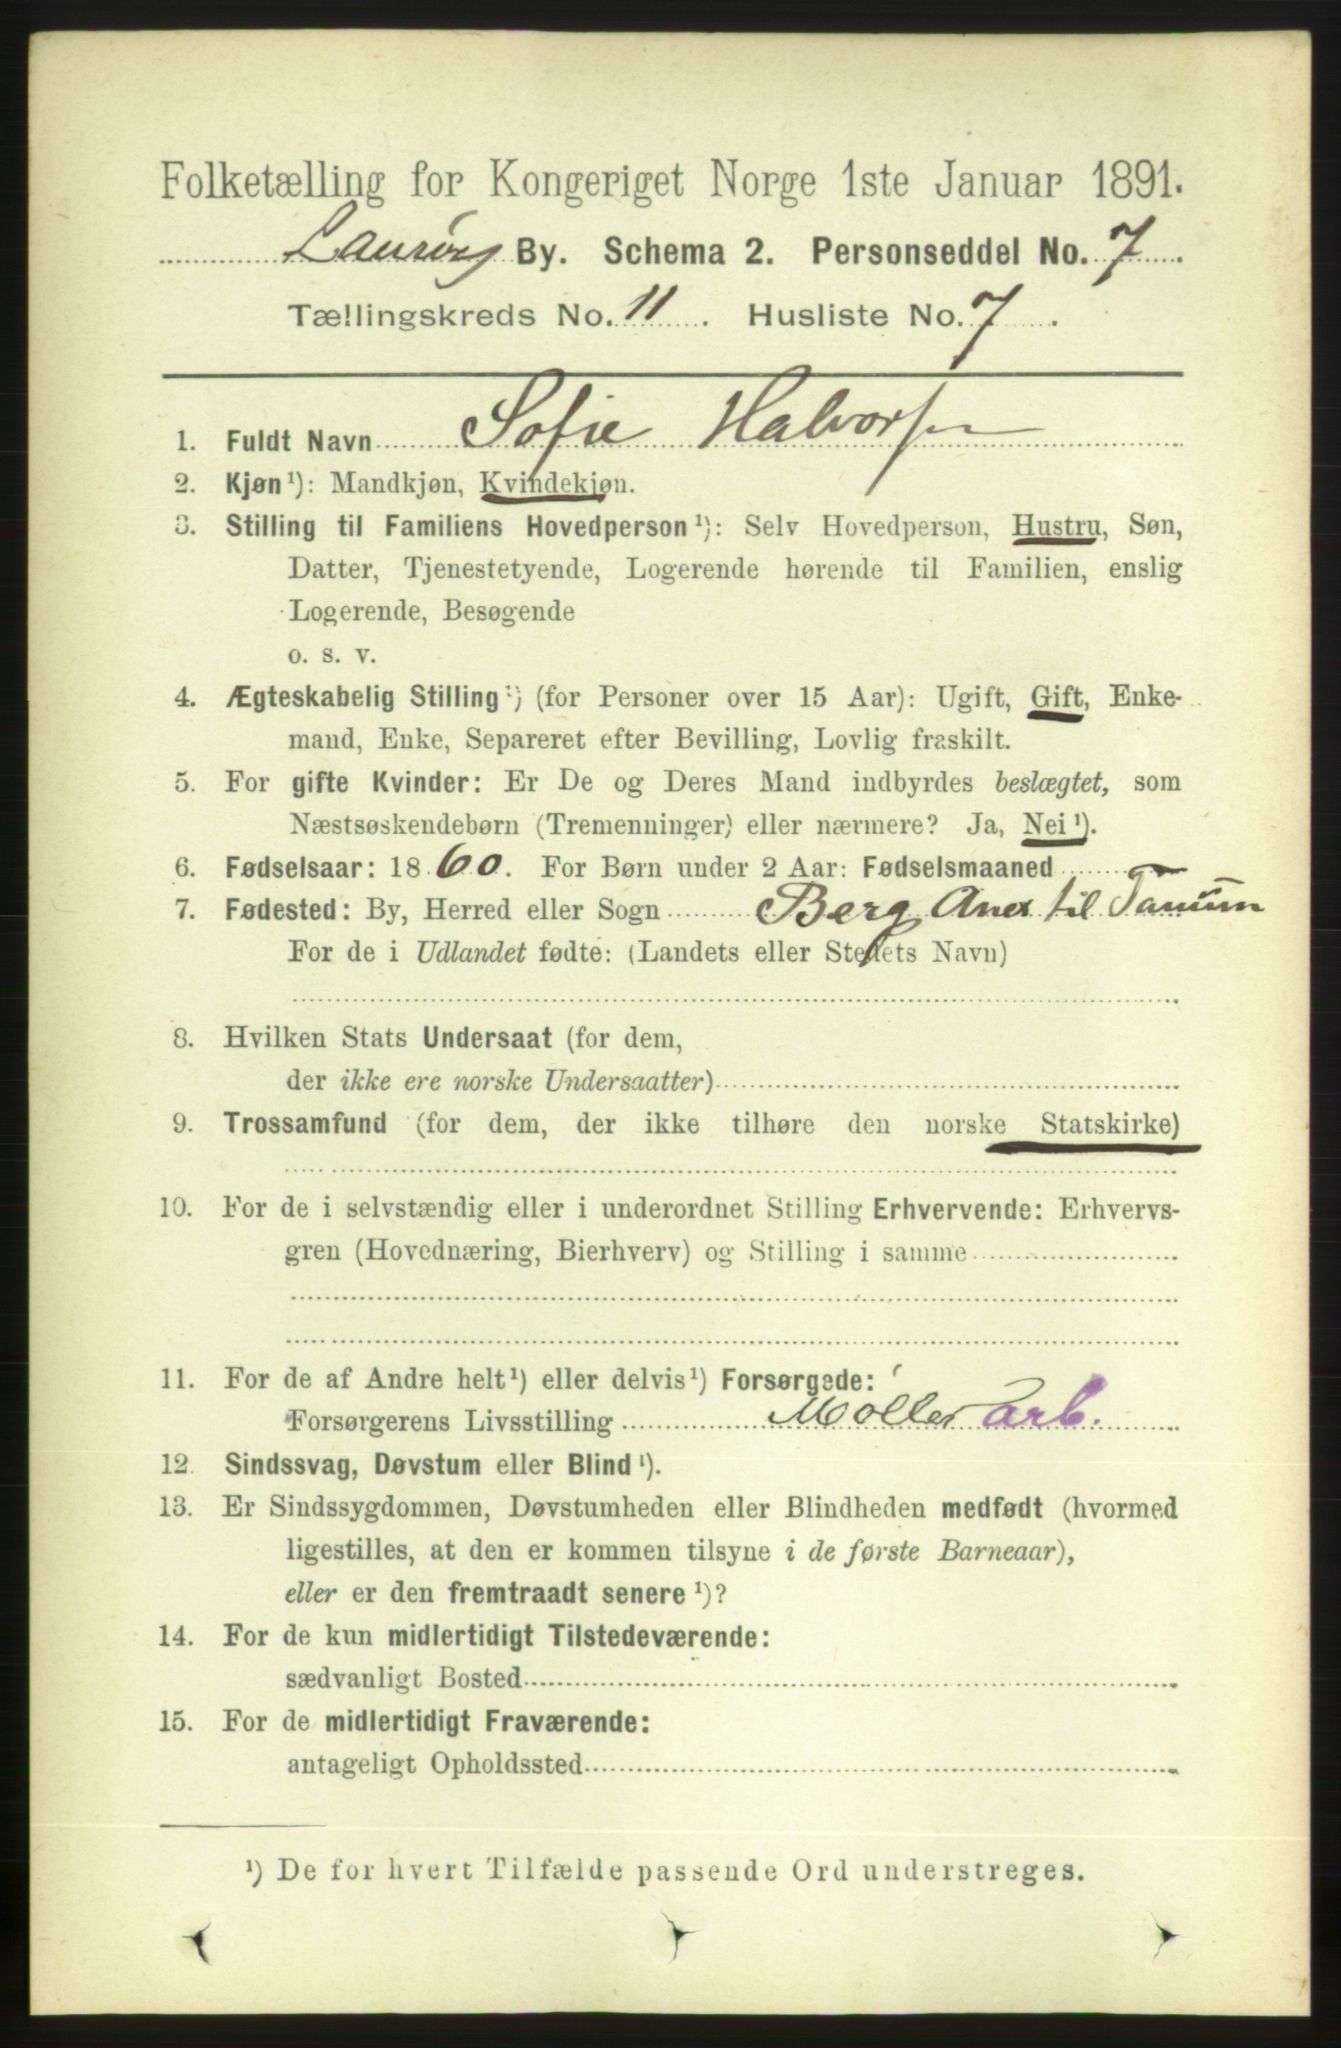 Folketælling for Kongeriget Norge 1ste Januar 1891.
Laurvig By. Schema 2. Personseddel No. 7
Tællingskreds No. 11. Husliste No. 7.
1. Fuldt Navn Sofie Halvorsen
2. Kjøn¹): Mandkjøn, Kvindekjøn.
3. Stilling til Familiens Hovedperson¹): Selv Hovedperson, Hustru, Søn,
Datter, Tjenestetyende, Logerende hørende til Familien, enslig
Logerende, Besøgende
o. s. v.
4. Ægteskabelig Stilling¹) (for Personer over 15 Aar): Ugift, Gift, Enke-
mand, Enke, Separeret efter Bevilling, Lovlig fraskilt.
5. For gifte Kvinder: Er De og Deres Mand indbyrdes beslægtet, som
Næstsøskendebørn (Tremenninger) eller nærmere? Ja, Nei¹).
6. Fødselsaar: 1860. For Børn under 2 Aar: Fødselsmaaned
7. Fødested: By, Herred eller Sogn Berg Anex til Tanum
For de i Udlandet fødte: (Landets eller Stedets Navn)
8. Hvilken Stats Undersaat (for dem,
der ikke ere norske Undersaatter)
9. Trossamfund (for dem, der ikke tilhøre den norske Statskirke)
10. For de i selvstændig eller i underordnet Stilling Erhvervende: Erhvervs-
gren (Hovednæring, Bierhverv) og Stilling i samme
11. For de af Andre helt¹) eller delvis¹) Forsørgede:
Forsørgerens Livsstilling Møller arb.
12. Sindssvag, Døvstum eller Blind¹).
13. Er Sindssygdommen, Døvstumheden eller Blindheden medfødt (hvormed
ligestilles, at den er kommen tilsyne i de første Barneaar),
eller er den fremtraadt senere¹)?
14. For de kun midlertidigt Tilstedeværende:
sædvanligt Bosted
15. For de midlertidigt Fraværende:
antageligt Opholdssted
¹) De for hvert Tilfælde passende Ord understreges.